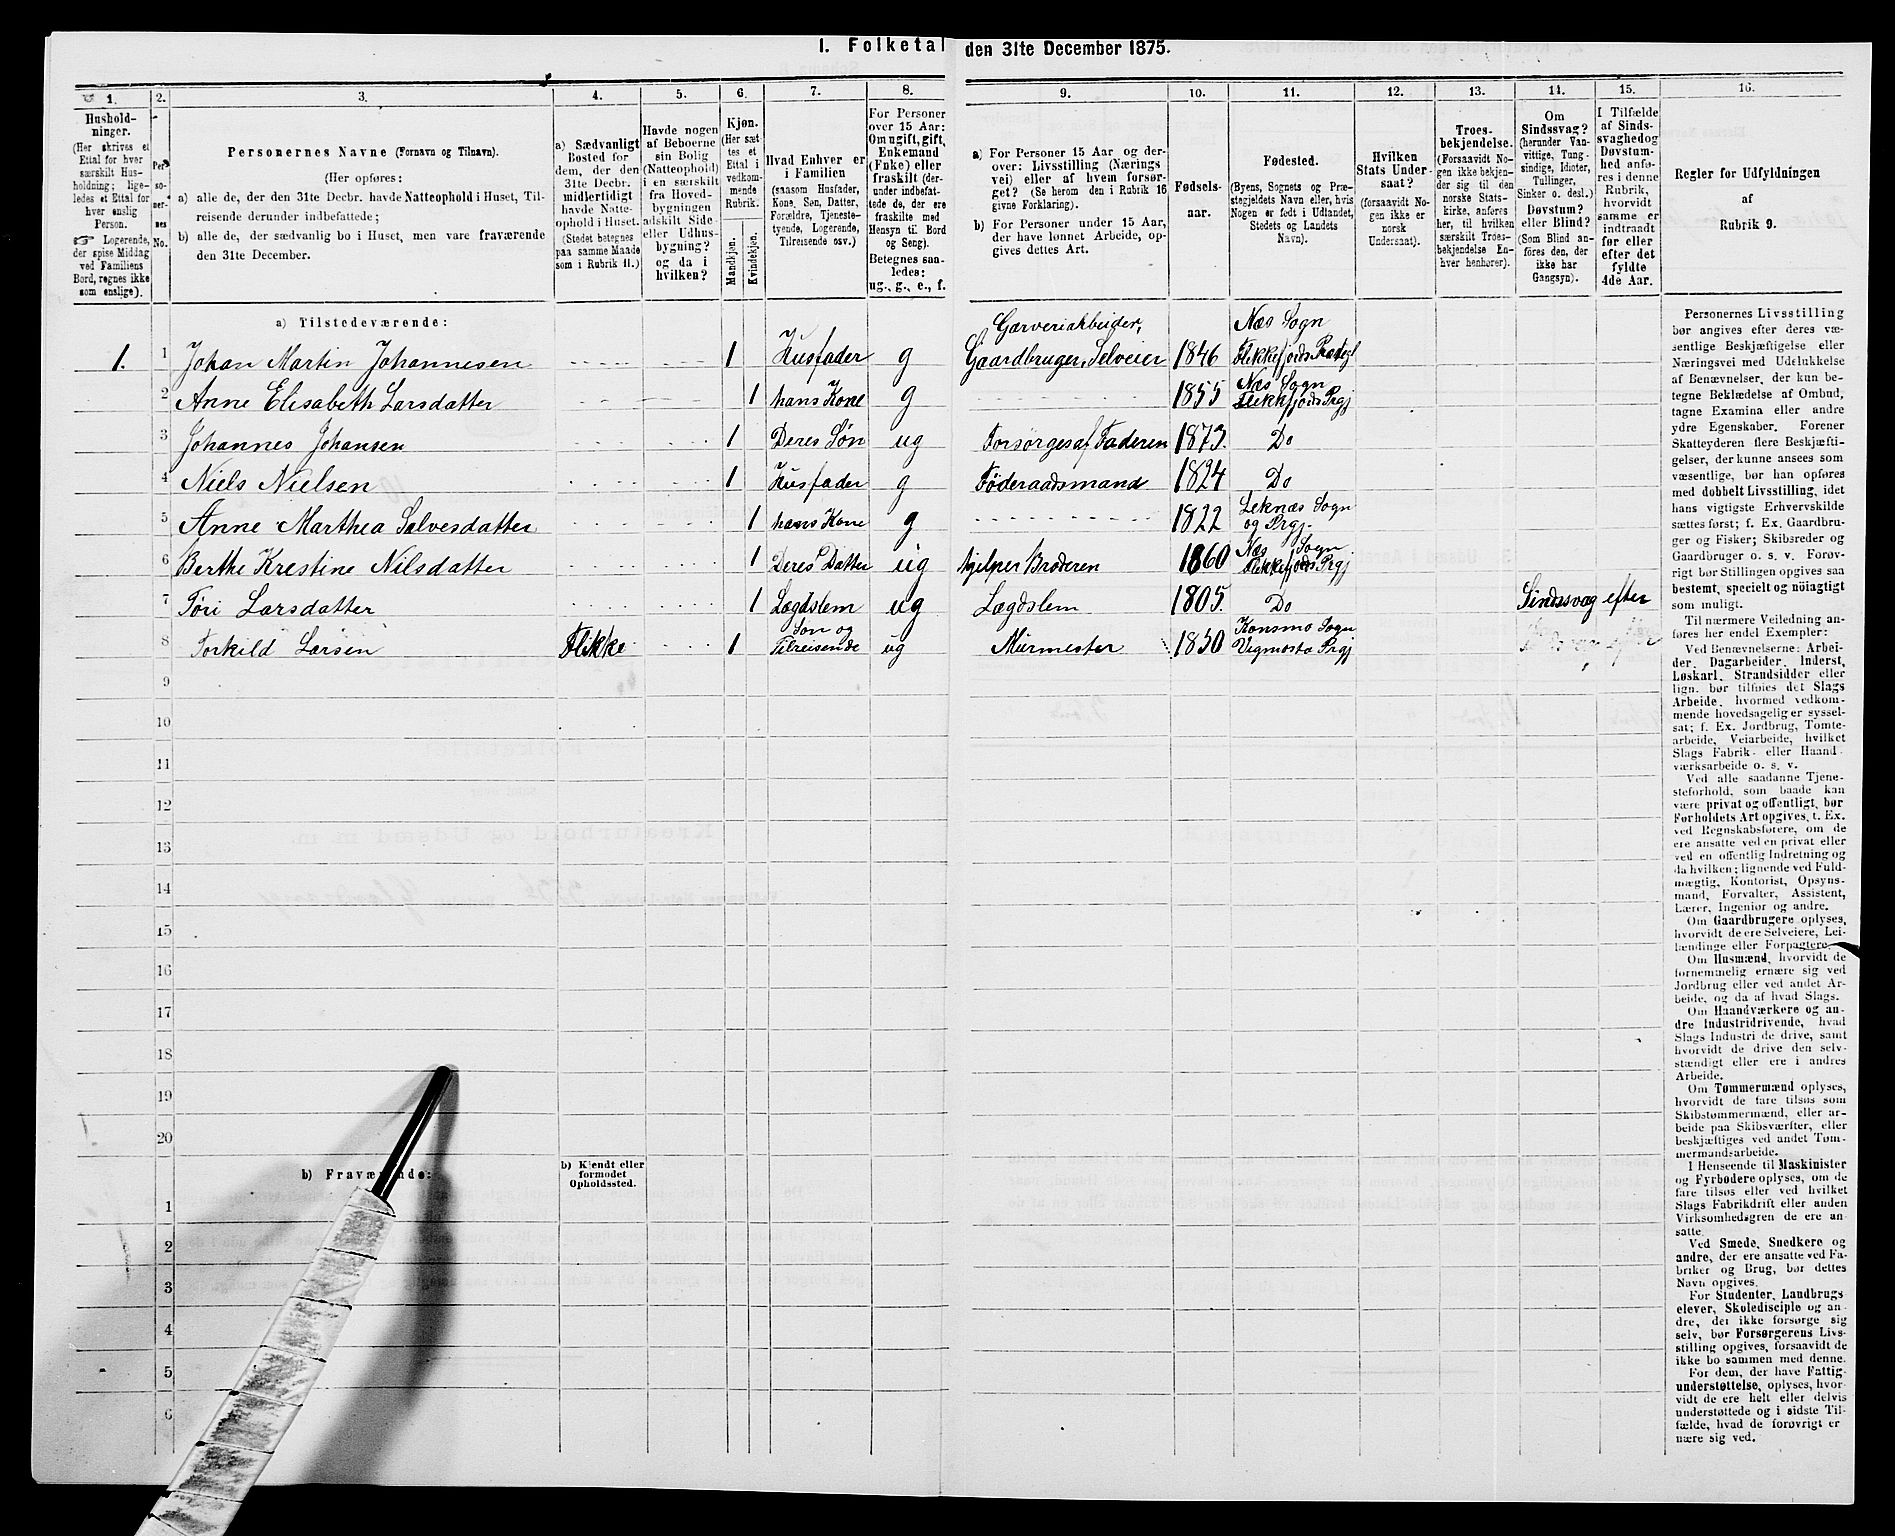 1. Folketal den 31te December 1875.
1. 2. 3. 4. 5. 6. 7. 8. 9. 10. 11. 12. 13. 14. 15. 16.
Hushold-
ninger.
(Her skrives et
Ettal for hver
særskilt Hus-
holdning; lige-
ledes et Ettal for
hver enslig
Person.
☞ Logerende,
der spise Middag
ved Familiens
Bord, regnes ikke
som enslige).
Per-
so-
ner-
nes
No.
Personernes Navne (Fornavn og Tilnavn).
(Her opføres:
a) alle de, der den 31te Decbr. havde Natteophold i Huset, Til-
reisende derunder indbefattede;
b) alle de, der sædvanlig bo i Huset, men vare fraværende
den 31te December.
a) Sædvanligt
Bosted for
dem, der den
31te Decbr.
midlertidigt
havde Natte-
ophold i Huset.
(Stedet betegnes
paa samme Maade
som i Rubrik 11.)
Havde nogen
af Beboerne
sin Bolig
(Natteophold)
i en særskilt
fra Hoved-
bygningen
adskilt Side-
eller Udhus-
bygning?
og da i
hvilken?
Kjøn.
(Her sæt-
tes et
Ettal i
vedkom-
mende
Rubrik.
Mandkjøn.
Kvindekjøn.
Hvad Enhver er
i Familien
(saasom Husfader,
Kone, Søn, Datter,
Forældre, Tjeneste-
tyende, Logerende,
Tilreisende osv.)
For Personer
over 15 Aar:
Om ugift, gift,
Enkemand
(Enke) eller
fraskilt (der-
under indbefat-
tede de, der ere
fraskilte med
Hensyn til Bord
og Seng).
Betegnes saa-
ledes:
ug., g., e., f.
a) For Personer 15 Aar og der-
over: Livsstilling (Nærings
vei) eller af hvem forsør-
get? (Se herom den i Rubrik 16
givne Forklaring).
b) For Personer under 15 Aar,
der have lønnet Arbeide, op-
gives dettes Art.
Fødsels-
aar.
Fødested.
(Byens, Sognets og Præ-
stegjeldets Navn eller, hvis
Nogen er født i Udlandet,
Stedets og Landets
Navn).
Hvilken
Stats Under-
saat?
(forsaavidt No-
gen ikke er
norsk
Undersaat).
Troes-
bekjendelse.
(Forsaavidt No-
gen ikke bekjen-
der sig til den
norske Stats-
kirke, anføres
her, til hvilken
særskilt Troes-
bekjendelse En-
hver henhører).
Om
Sindssvag?
(herunder Van-
vittige, Tung-
sindige, Idioter,
Tullinger,
Sinker o. desl.)
Døvstum?
eller Blind?
(Som Blind an-
føres den, der
ikke har
Gangsyn).
I Tilfælde
af Sinds-
svaghed og
Døvstum-
hed anfø-
res i denne
Rubrik,
hvorvidt
samme er
indtraadt
før eller
efter det
fyldte
4de Aar.
Regler for Udfyldningen
af
Rubrik 9.
a) Tilstedeværende:
1. 1 Johan Martin Johannesen 1 Husfader g Garveriarbeider, Gaardbruger, Selveier 1846 Næs Sogn Flikkefjords Præstegl
2 Anne Elisabeth Larsdatter 1 hans Kone g 1855 Næs Sogn Flekkefjords Prgj
3 Johannes Johansen 1 Deres Søn ug Forsørges af Faderen 1873. Do
4 Niels Nielsen 1 Husfader g Føderaadsmand 1824 Do
5 Anne Marthea Salvesdatter 1 hans Kone g 1822 Leknæs Sogn og Prgj.
6 Berthe Krestine Nilsdatter 1 Deres Datter ug hjelper Broderen 1860 Næs Sogn Flekkefjords Prgj
7 Tøri Larsdatter 1 Lægdslem ug Lægdslem 1805. Do Sindssvag efter
8 Torkild Larsen Flikke 1 Søn og Tilreisende ug Murmester 1850 Konsmo Sogn Vegmosta Prgj
9
10
11
12
13
14
15
16
17
18
19
20
b) Fraværende:
b) Kjendt eller
formodet
Opholdssted.
1
2
3
4
5
6
Personernes Livsstilling
bør angives efter deres væ-
sentlige Beskjæftigelse eller
Næringsvei med Udelukkelse
af Benævnelser, der kun be-
tegne Beklædelse af Ombud,
tagne Examina eller andre
ydre Egenskaber. Forener
Skatteyderen flere Beskjæfti-
gelser, der kunne ansees som
væsentlige, bør han opføres
med dobbelt Livsstilling, idet
hans vigtigste Erhvervskilde
sættes først; f. Ex. Gaardbru-
ger og Fisker; Skibsreder og
Gaardbruger o. s. v. Forøv-
rigt bør Stillingen opgives saa
bestemt, specielt og nöiagtigt
som muligt.
Til nærmere Veiledning an-
føres her endel Exempler:
Ved Benævnelserne: Arbei-
der, Dagarbeider, Inderst,
Løskarl, Strandsidder eller
lign. bør tilføies det Slags
Arbeide, hvormed vedkom-
mende hovedsagelig er syssel-
sat; f. Ex. Jordbrug, Tomte-
arbeide, Veiarbeide, hvilket
Slags Fabrik- eller Haand-
værksarbeide o. s. v.
Ved alle saadanne Tjene-
steforhold, som baade kan
være privat og offentligt, bør
Forholdets Art opgives, t. Ex.
ved Regnskabsførere, om de
ere ansatte ved en privat eller
ved en offentlig Indretning og
da hvilken; lignende ved Fuld-
mægtig, Kontorist, Opsyns-
mand, Forvalter, Assistent,
Lærer, Ingeniør og andre.
Om Gaardbrugere oplyses,
hvorvidt de ere Selveiere, Lei-
lændinge eller Forpagtere.
Om Husmænd, hvorvidt de
fornemmelig ernære sig ved
Jordbrug eller ved andet Ar-
beide, og da af hvad Slags.
Om Haandværkere og an-
dre Industridrivende, hvad
Slags Industri de drive, samt
hvorvidt de drive den selv-
stændigt eller ere i andres
Arbeide.
Om Tømmermænd oplyses,
hvorvidt de fare tilsøs som
Skibstømmermænd, eller ar-
beide paa Skibsværfter, eller
beskjæftiges ved andet Tøm-
mermandsarbeide.
I Henseende til Maskinister
og Fyrbødere oplyses, om de
fare tilsøs eller ved hvilket
Slags Fabrikdrift eller anden
Virksomhedsgren de ere an-
satte.
Ved Smede, Snedkere og
andre, der ere ansatte ved Fa-
briker og Brug, bør dettes
Navn opgives.
For Studenter, Landbrugs-
elever, Skoledisciple og an-
dre, der ikke forsørge sig
selv, bør Forsørgerens Livs-
stilling opgives, forsaavidt de
ikke bo sammen med denne.
For dem, der have Fattig-
understøttelse, oplyses, hvor-
vidt de ere helt eller delvis
understøttede og i sidste Til-
fælde, hvad de forøvrigt er-
nære sig ved.